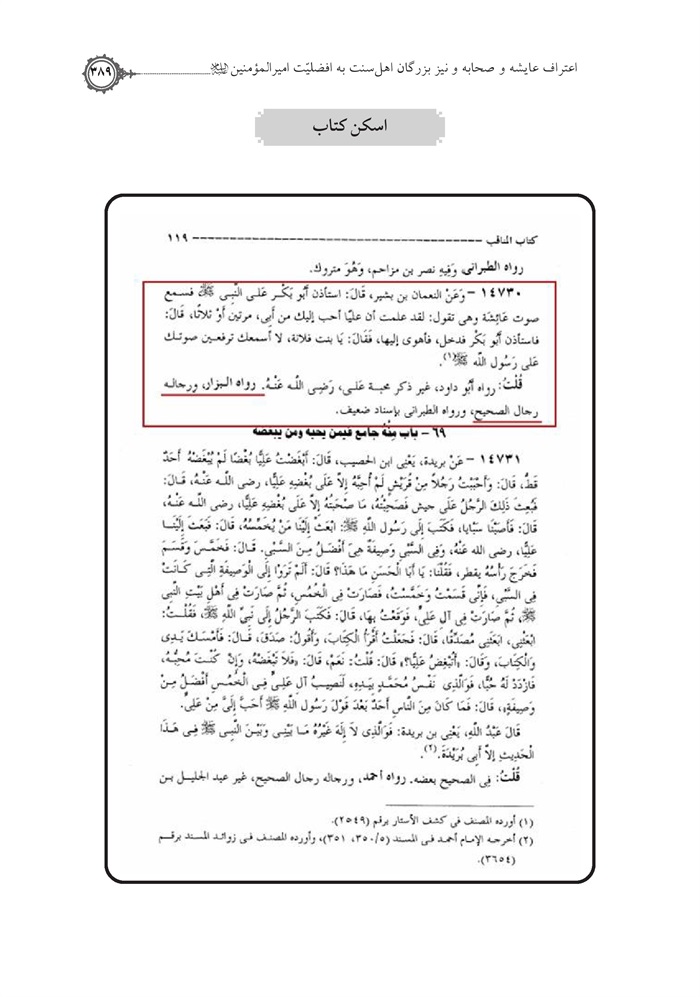 اعتراف عایشه و صحابه و نیز بزرگان اهل‌سنت به افضلیّت امیرالمؤمنین
۳۸۹
اسکن کتاب
كتاب المناقب ــــــــــــــــــــــــــــــــــــــــــــ ١١٩
رواه الطبرانى وَفِيهِ نصر بن مزاحم، وَهُوَ متروك.
١٤٧٣٠ - وَعَنْ النعمان بن بشير، قَالَ: استأذن أَبُو بَكْر عَلَى النَّبِى ﷺ فسمع
صوت عَائِشَة وهى تقول: لقد علمت أن عليّا أحب إليك من أَبِى، مرتين أَوْ ثلاثًا، قَالَ:
فاستأذن أَبُو بَكْر فدخل، فأهوى إليها، فَقَالَ: يَا بنت فلانة، لا أسمعك ترفعين صوتك
عَلَى رَسُول اللَّه ﷺ(١).
قُلْتُ: رواه أَبُو داود، غير ذكر محبة عَلى، رَضِى اللَّه عَنْهُ. رواه البزار، ورجاله
رجال الصحيح، ورواه الطبرانى بإسناد ضعيف.
٦٩ - باب مِنْهُ جامع فيمن يحبه ومن يبغضه
١٤٧٣١ - عَنْ بريدة، يَعْنِى ابن الحصيب، قَالَ: أَبْغَضْتُ عَلِيًّا بُغْضًا لَمْ يُبْغَضْهُ أَحَدٌ
قَطُّ، قَالَ: وَأَحْبَبْتُ رَجُلاً مِنْ قُرَيْشٍ لَمْ أُحِبَّهُ إلاَّ عَلَى بُغْضِهِ عَلِيًّا، رضى اللَّه عَنْهُ، قَالَ:
فَبُعِثَ ذَلِكَ الرَّجُلُ عَلَى جيش فَصَحِبْتُهُ، مَا صَحِبْتُهُ إلاَّ عَلَى بُغْضِهِ عَلِيًّا، رضى اللَّه عَنْهُ،
قَالَ: فَأَصَبْنَا سَبَايا، فَكَتَبَ إِلَى رَسُول اللَّهِ ﷺ: ابْعَثْ إِلَيْنَا مَنْ يُخَمِّسُهُ، قَالَ: فَبَعَثَ إِلَيْنَا
عَلِيًّا، رضى الله عَنْهُ، وَفِى السَّبْى وَصِيفَةٌ هِىَ أَفْضَلُ مِنَ السَّبْىِ. قَالَ: فَخَمَّسَ وَقَسَمَ
فَخَرَجَ رَأْسُهُ يقطر، فَقُلْنَا: يَا أَبَا الْحَسَنِ مَا هَذَا؟ قَالَ: أَلَمْ تَرَوْا إِلَى الْوَصِيفَةِ الَّتِى كَانَتْ
فِى السَّبْىِ، فَإِنِّى قَسَمْتُ وَخَمَّسْتُ، فَصَارَتْ فِى الْخُمُسِ، ثُمَّ صَارَتْ فِى أَهْلِ بَيْتِ النَّبِى
ﷺ، ثُمَّ صَارَتْ فِى آلِ عَلِىٍّ، فَوَقَعْتُ بِهَا، قَالَ: فَكَتَبَ الرَّجُلُ إِلَى نَبِىِّ اللَّهِ ﷺ، فَقُلْتُ:
ابْعَثْنِى، ابَعَثَنِى مُصَدِّقًا، قَالَ: فَجَعَلْتُ أَقْرَأُ الْكِتَابَ، وَأَقُولُ: صَدَقَ، قَالَ: فَأَمْسَكَ يَدِى
وَالْكِتَابَ، وَقَالَ: «أَتُبْغِضُ عَلِيًّا؟» قَالَ: قُلْتُ: نَعَمْ، قَالَ: «فَلاَ تَبْغَضْهُ، وَإِنْ كُنْتَ مُحِبُّهُ،
فَازْدَدْ لَهُ حُبًّا، فَوَالَّذِى نَفْسُ مُحَمَّدٍ بِيَدِهِ، لَنَصِيبُ آلِ عَلِىٍّ فِى الْخُمُسِ أَفْضَلُ مِنْ
وَصِيفَةٍ»، قَالَ: فَمَا كَانَ مِنَ النَّاسِ أَحَدٌ بَعْدَ قَوْلِ رَسُولِ اللَّه ﷺ أَحَبَّ إِلَىَّ مِنْ عَلِىٍّ.
قَالَ عَبْدُ اللَّهِ، يَعْنِى بن بريدة: فَوَالَّذِى لاَ إِلَهَ غَيْرُهُ مَا بَيْنِى وَبَيْنَ النَّبِىِ ﷺ فِى هَذَا
الْحَدِيثِ إِلاَّ أَبِى بُرَيْدَةَ.(٢).
قُلْتُ: فِى الصحيح بعضه. رواه أحمد، ورجاله رجال الصحيح، غير عبد الجليل بن
(١) أورده المصنف فى كشف الأستار برقم (٢٥٤٩)
(٢) أخرجه الإمام أحمد فى المسند (٣٥٠/٥، ٣٥١)، وأورده المصنف فى زوائد المسند برقم
(٣٦٥٤)